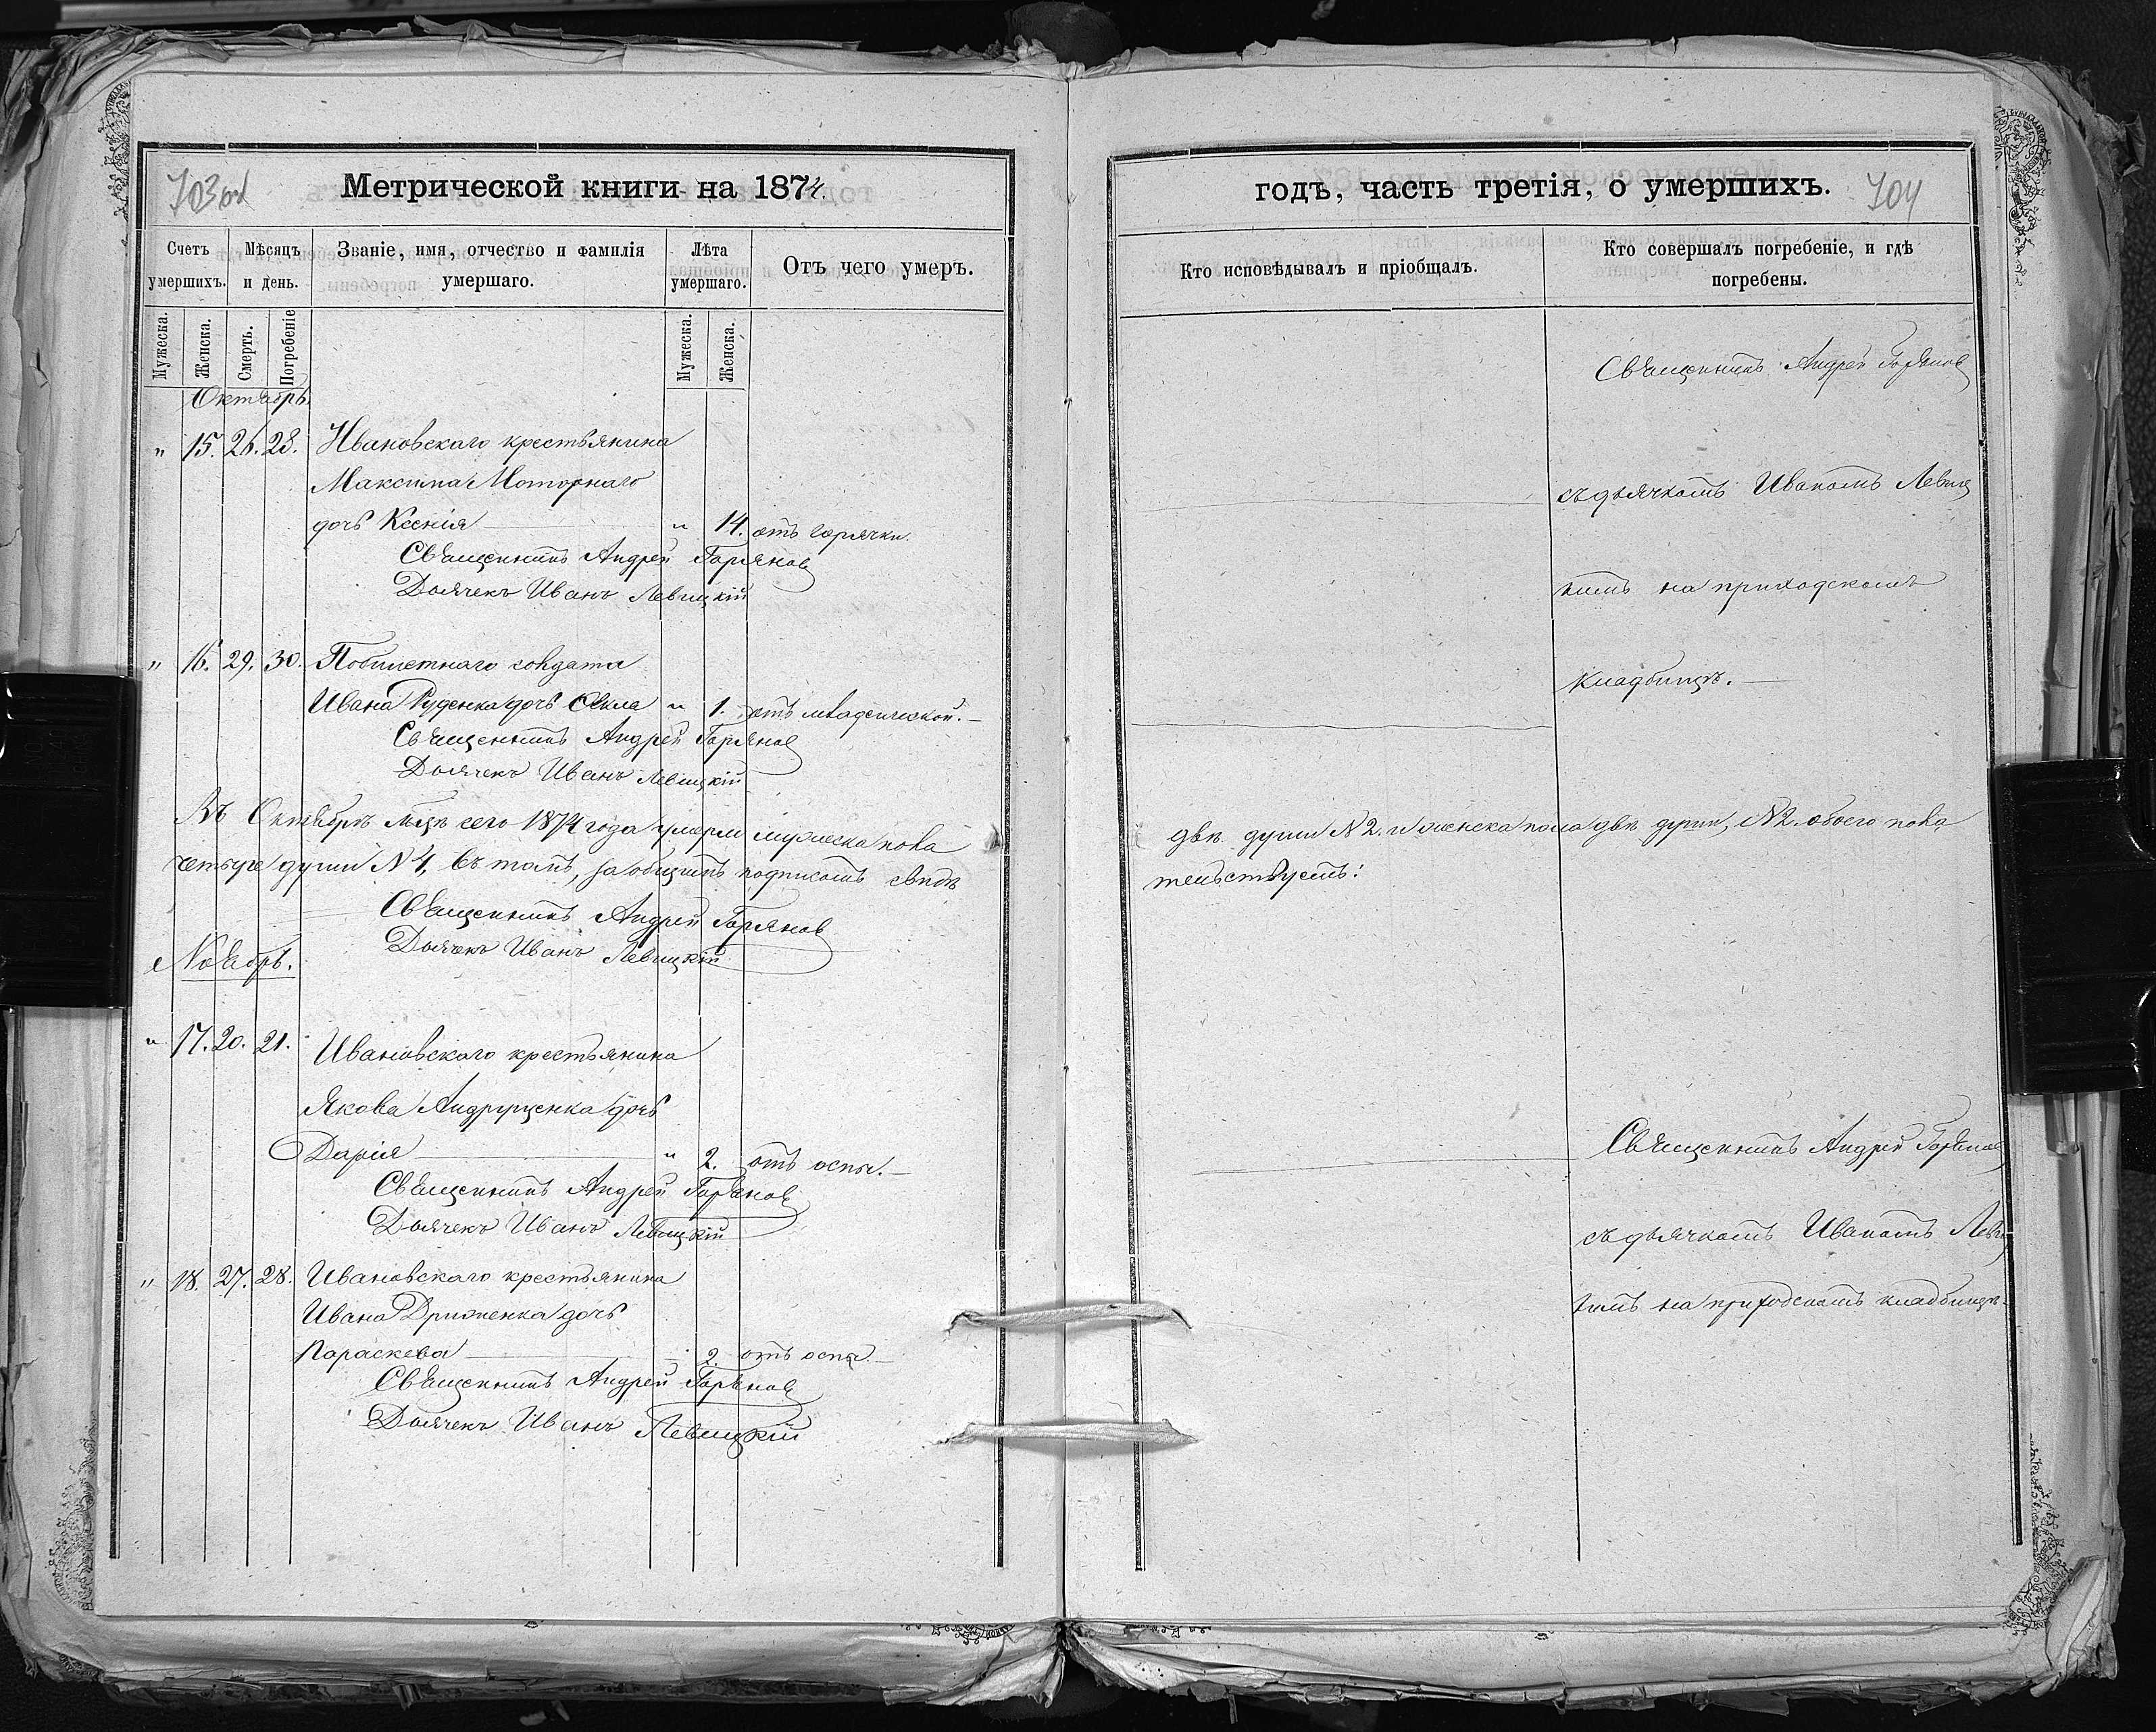 703об
Метрической книги на 1874.
Счетъ умершихъ.
Мѣсяцъ и день.
Званіе, имя, отчество и фамилія умершаго.
Лѣта умершаго.
Отъ чего умеръ.
Мужеска.
Женска.
Смерть.
Погребеніе
Мужеска.
Женска.
Октябрь.
" 15. 26. 28. Ивановскаго крестьянина
Максима Моторнаго
дочь Ксенія " 14. отъ горячки.
Священникъ Андрей Горянов
Дьячекъ Иванъ Левицкій
" 16. 29. 30. Побилетнаго солдата
Ивана Руденка дочь Ѳекла " 1. отъ младенческой.
Священникъ Андрей Горянов
Дьячекъ Иванъ Левицкій
Въ Октябрѣ мцѣ сего 1874 года умерли мужеска пола
четыре души N 4, въ томъ, за общимъ подписомъ свидѣ
Священникъ Андрей Горянов
Дьячекъ Иванъ Левицкій
Ноябрь.
" 17. 20. 21. Ивановскаго крестьянина
Якова Андрущенка дочь
Дарія " 2. отъ оспы.
Священникъ Андрей Горянов
Дьячекъ Иванъ Левицкій
" 18. 27. 28. Ивановскаго крестьянина
Ивана дочь
Параскева 2. отъ оспы.
Священникъ Андрей Горянов
Дьячекъ Иванъ Левицкій
годъ, часть третія, о умершихъ.
704
Кто исповѣдывалъ и пріобщалъ.
Кто совершалъ погребеніе, и гдѣ погребены.
Священникъ Андрей Горянов
съ дьячкомъ Иваномъ Левиц
кимъ на приходскомъ
кладбищѣ.
двѣ души N 2. и женска пола двѣ души, N 2. обоего пола
тельствуетъ:
Священникъ Андрей Горянов
съ дьячкомъ Иваномъ Левиц
кимъ на приходскомъ кладбищѣ.